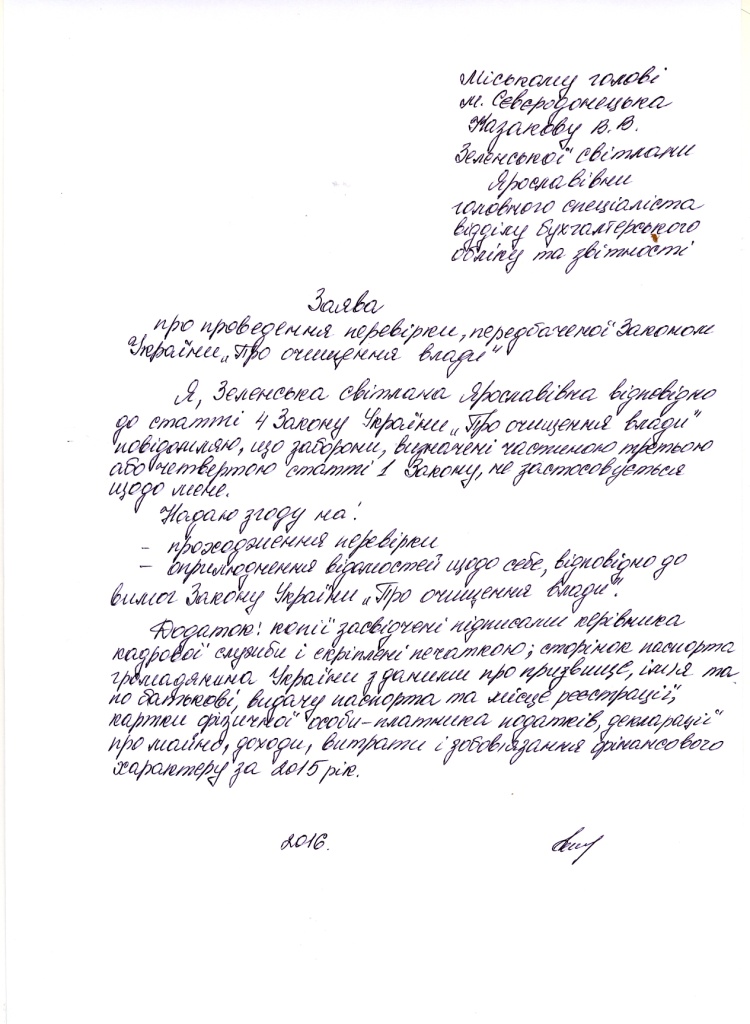 Міському голові
м. Сєвєродонецька
Казакову В.В.
Зеленської Світлани
Ярославівни
головного спеціаліста
відділу бухгалтерського
обліку та звітності
Заява
про проведення перевірки, передбаченої Законом
України „Про очищення влади"
Я, Зеленська Світлана Ярославівна відповідно
до статті 4 Закону України „Про очищення влади"
повідомляю, що заборони, визначені частиною третьою
або четвертою статті 1 Закону, не застосовується
щодо мене.
Надаю згоду на:
- проходження перевірки
- оприлюднення відомостей щодо себе, відповідно до
вимог Закону України „Про очищення влади".
Додаток: копії засвідчені підписами керівника
кадрової служби і скріплені печаткою; сторінок паспорта
громадянина України з даними про призвище, ім'я та
по батькові, видачу паспорта та місце реєстрації,
картки фізичної особи-платника податків, декларації
про майно, доходи, витрати і зобов'язання фінансового
характеру за 2015 рік.
2016.